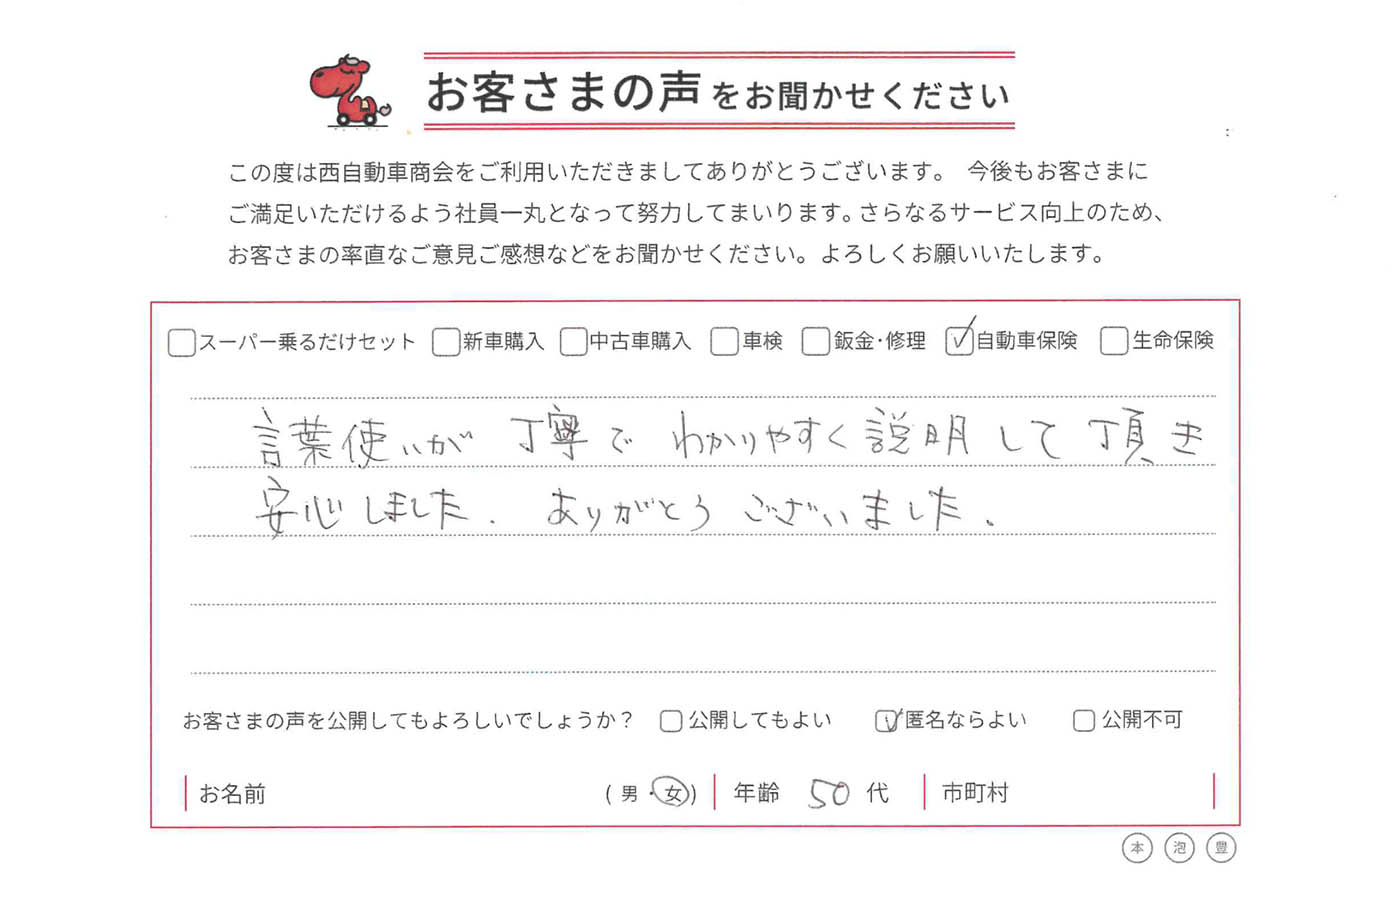 お客さまの声をお聞かせください
この度は西自動車商会をご利用いただきましてありがとうございます。 今後もお客さまに
ご満足いただけるよう社員一丸となって努力してまいります。さらなるサービス向上のため、
お客さまの率直なご意見ご感想などをお聞かせください。よろしくお願いいたします。
スーパー乗るだけセット 新車購入 中古車購入 車検 鈑金・修理 自動車保険 生命保険
言葉使いが 丁寧で わかりやすく 説明 して 頂き
安心しました. ありがとう ございました.
お客さまの声を公開してもよろしいでしょうか？ 公開してもよい 匿名ならよい 公開不可
お名前 (男・女) 年齢 50 代 市町村
本 泡 豊